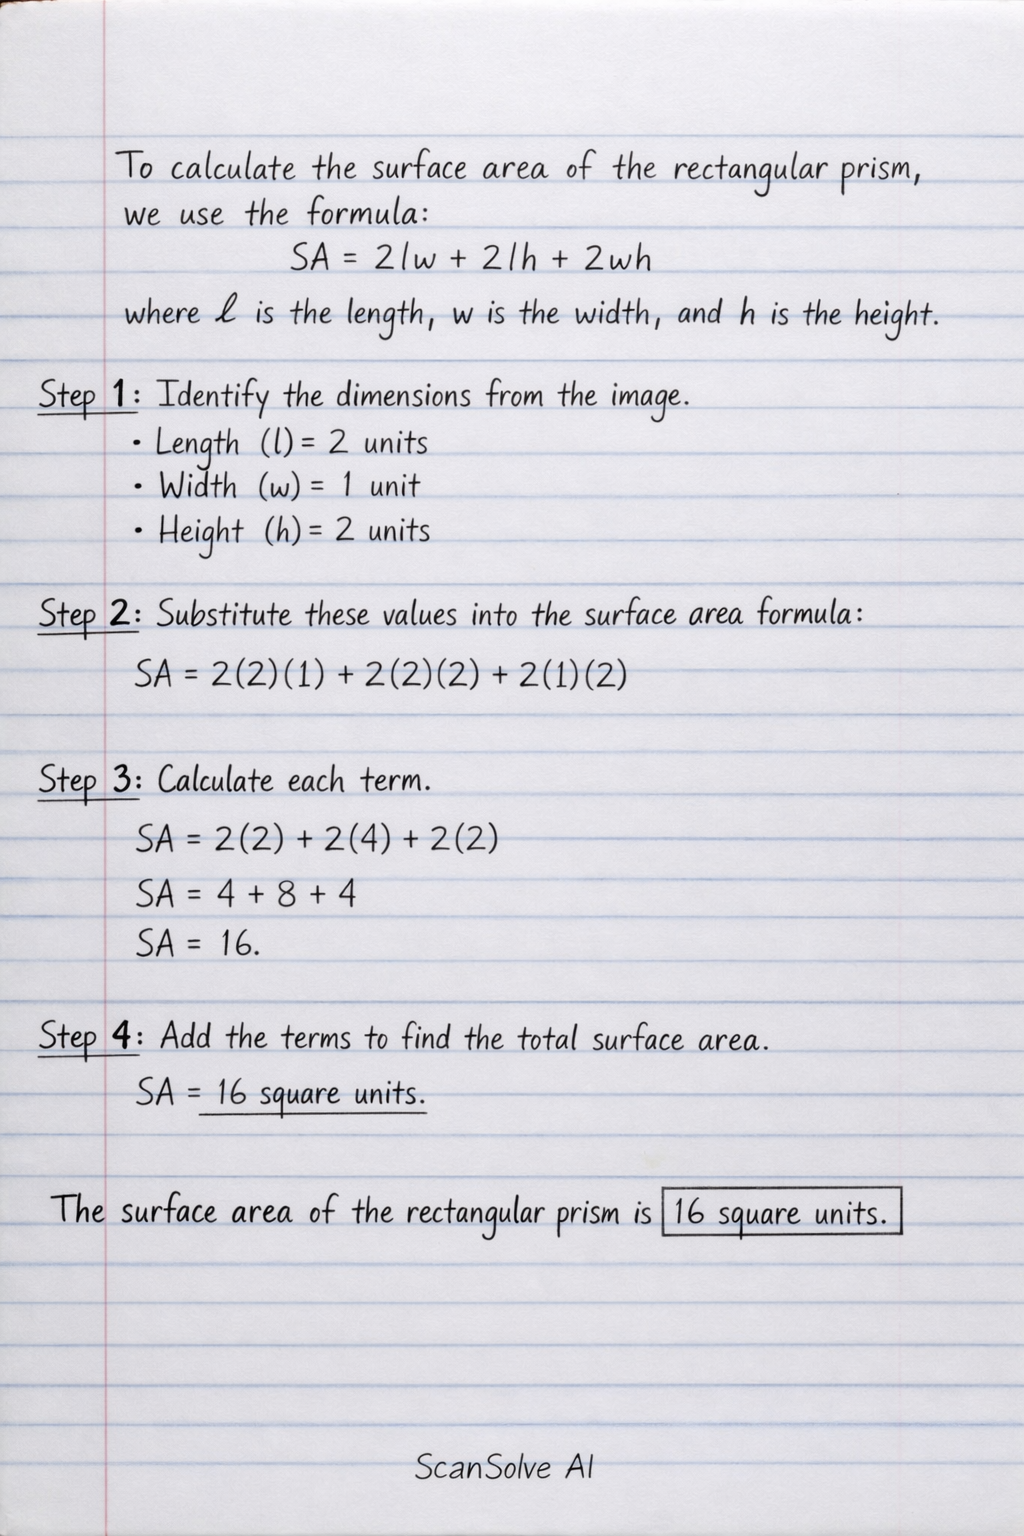 To calculate the surface area of the rectangular prism,
we use the formula:
SA = 2lw + 2lh + 2wh
where ℓ is the length, w is the width, and h is the height.
Step 1: Identify the dimensions from the image.
• Length (l) = 2 units
• Width (w) = 1 unit
• Height (h) = 2 units
Step 2: Substitute these values into the surface area formula:
SA = 2(2)(1) + 2(2)(2) + 2(1)(2)
Step 3: Calculate each term.
SA = 2(2) + 2(4) + 2(2)
SA = 4 + 8 + 4
SA = 16.
Step 4: Add the terms to find the total surface area.
SA = 16 square units.
The surface area of the rectangular prism is 16 square units.
ScanSolve AI